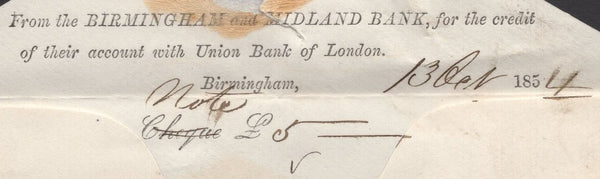 From the BIRMINGHAM and MIDLAND BANK, for the credit
of their account with Union Bank of London.
Birmingham, 13 Oct 1854
Note
Cheque £ 5